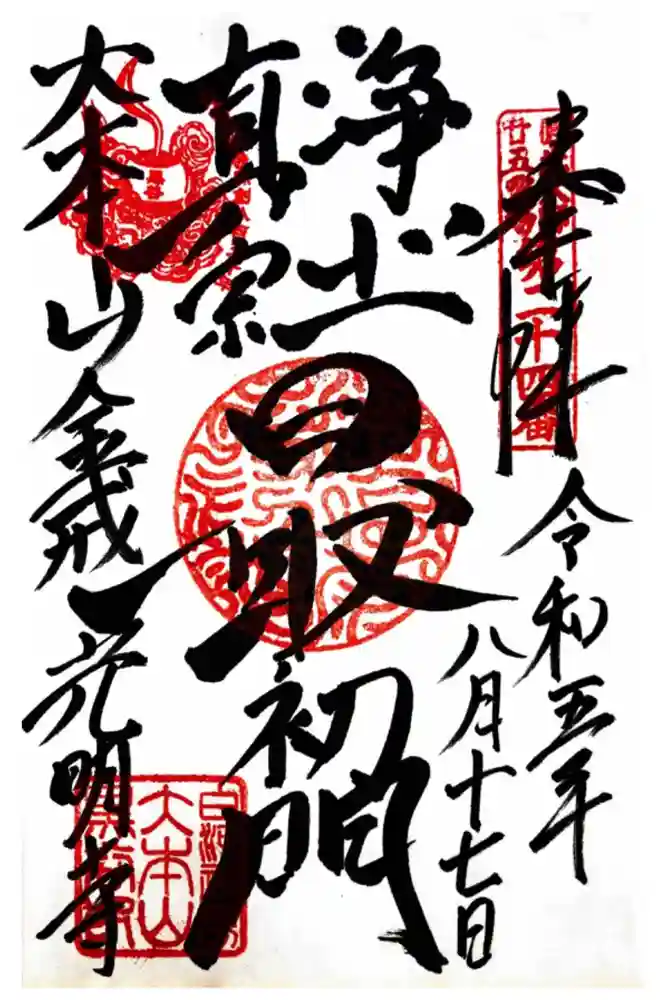 奉拝
廿五
二十四番
令和五年
八月十七日
浄土
真宗
最初門
大本山金戒光明寺
大本山